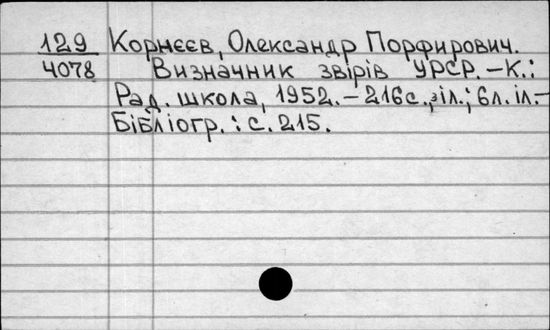 129 Корнєєв, Олександр Порфирович.
4078 Визначник звірів УРСР. – К.:
Рад. школа, 1952. – 216 с., з іл.; 6 л. іл. –
Бібліогр.: с. 215.